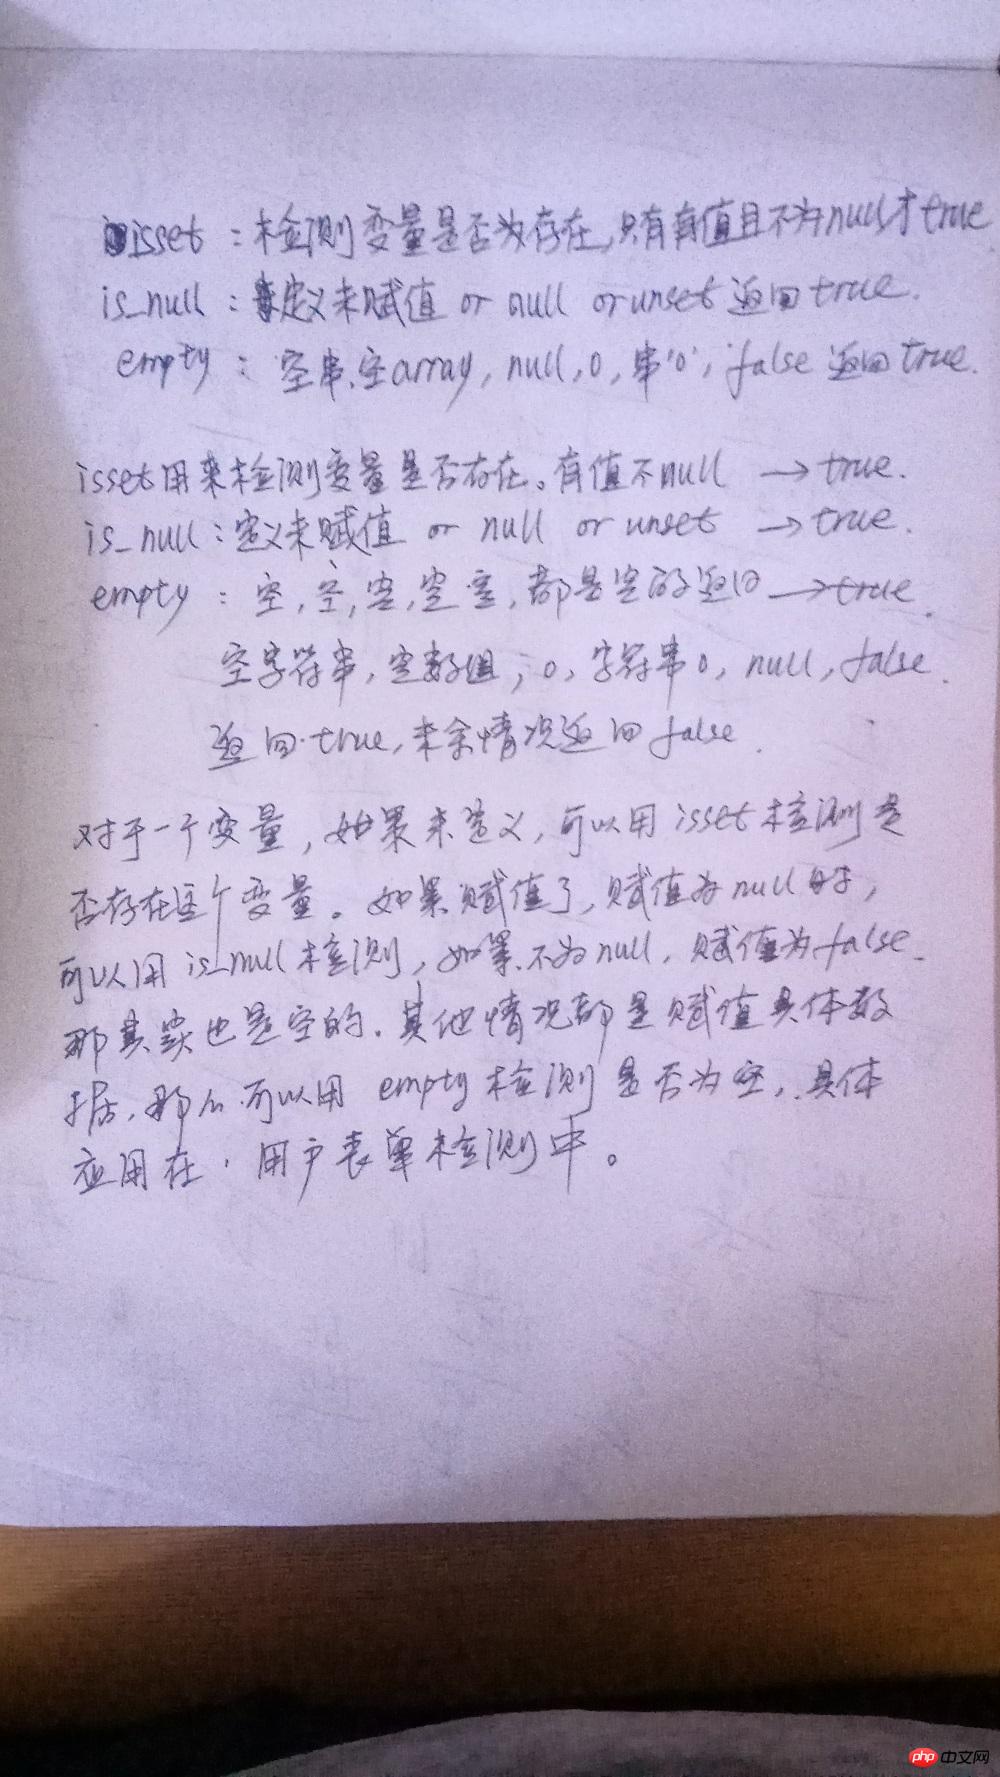 isset：检测变量是否为存在，只有有值且不为null才true
is_null：定义未赋值 or null or unset 返回true.
empty：空串、空array, null, 0, 串'0', false 返回true.
isset用来检测变量是否存在。有值不null → true.
is_null：定义未赋值 or null or unset → true.
empty：空,空,空,空,空,都是空的返回 → true.
空字符串,空数组,0,字符串0, null, false.
返回true,其余情况返回false.
对于一个变量,如果未定义,可以用isset检测是
否存在这个变量。如果赋值了,赋值为null时,
可以用is_null检测,如果不为null,赋值为false.
那其实也是空的.其他情况都是赋值具体数
据,那么可以用empty检测是否为空,具体
应用在,用户表单检测中。
php 中文网